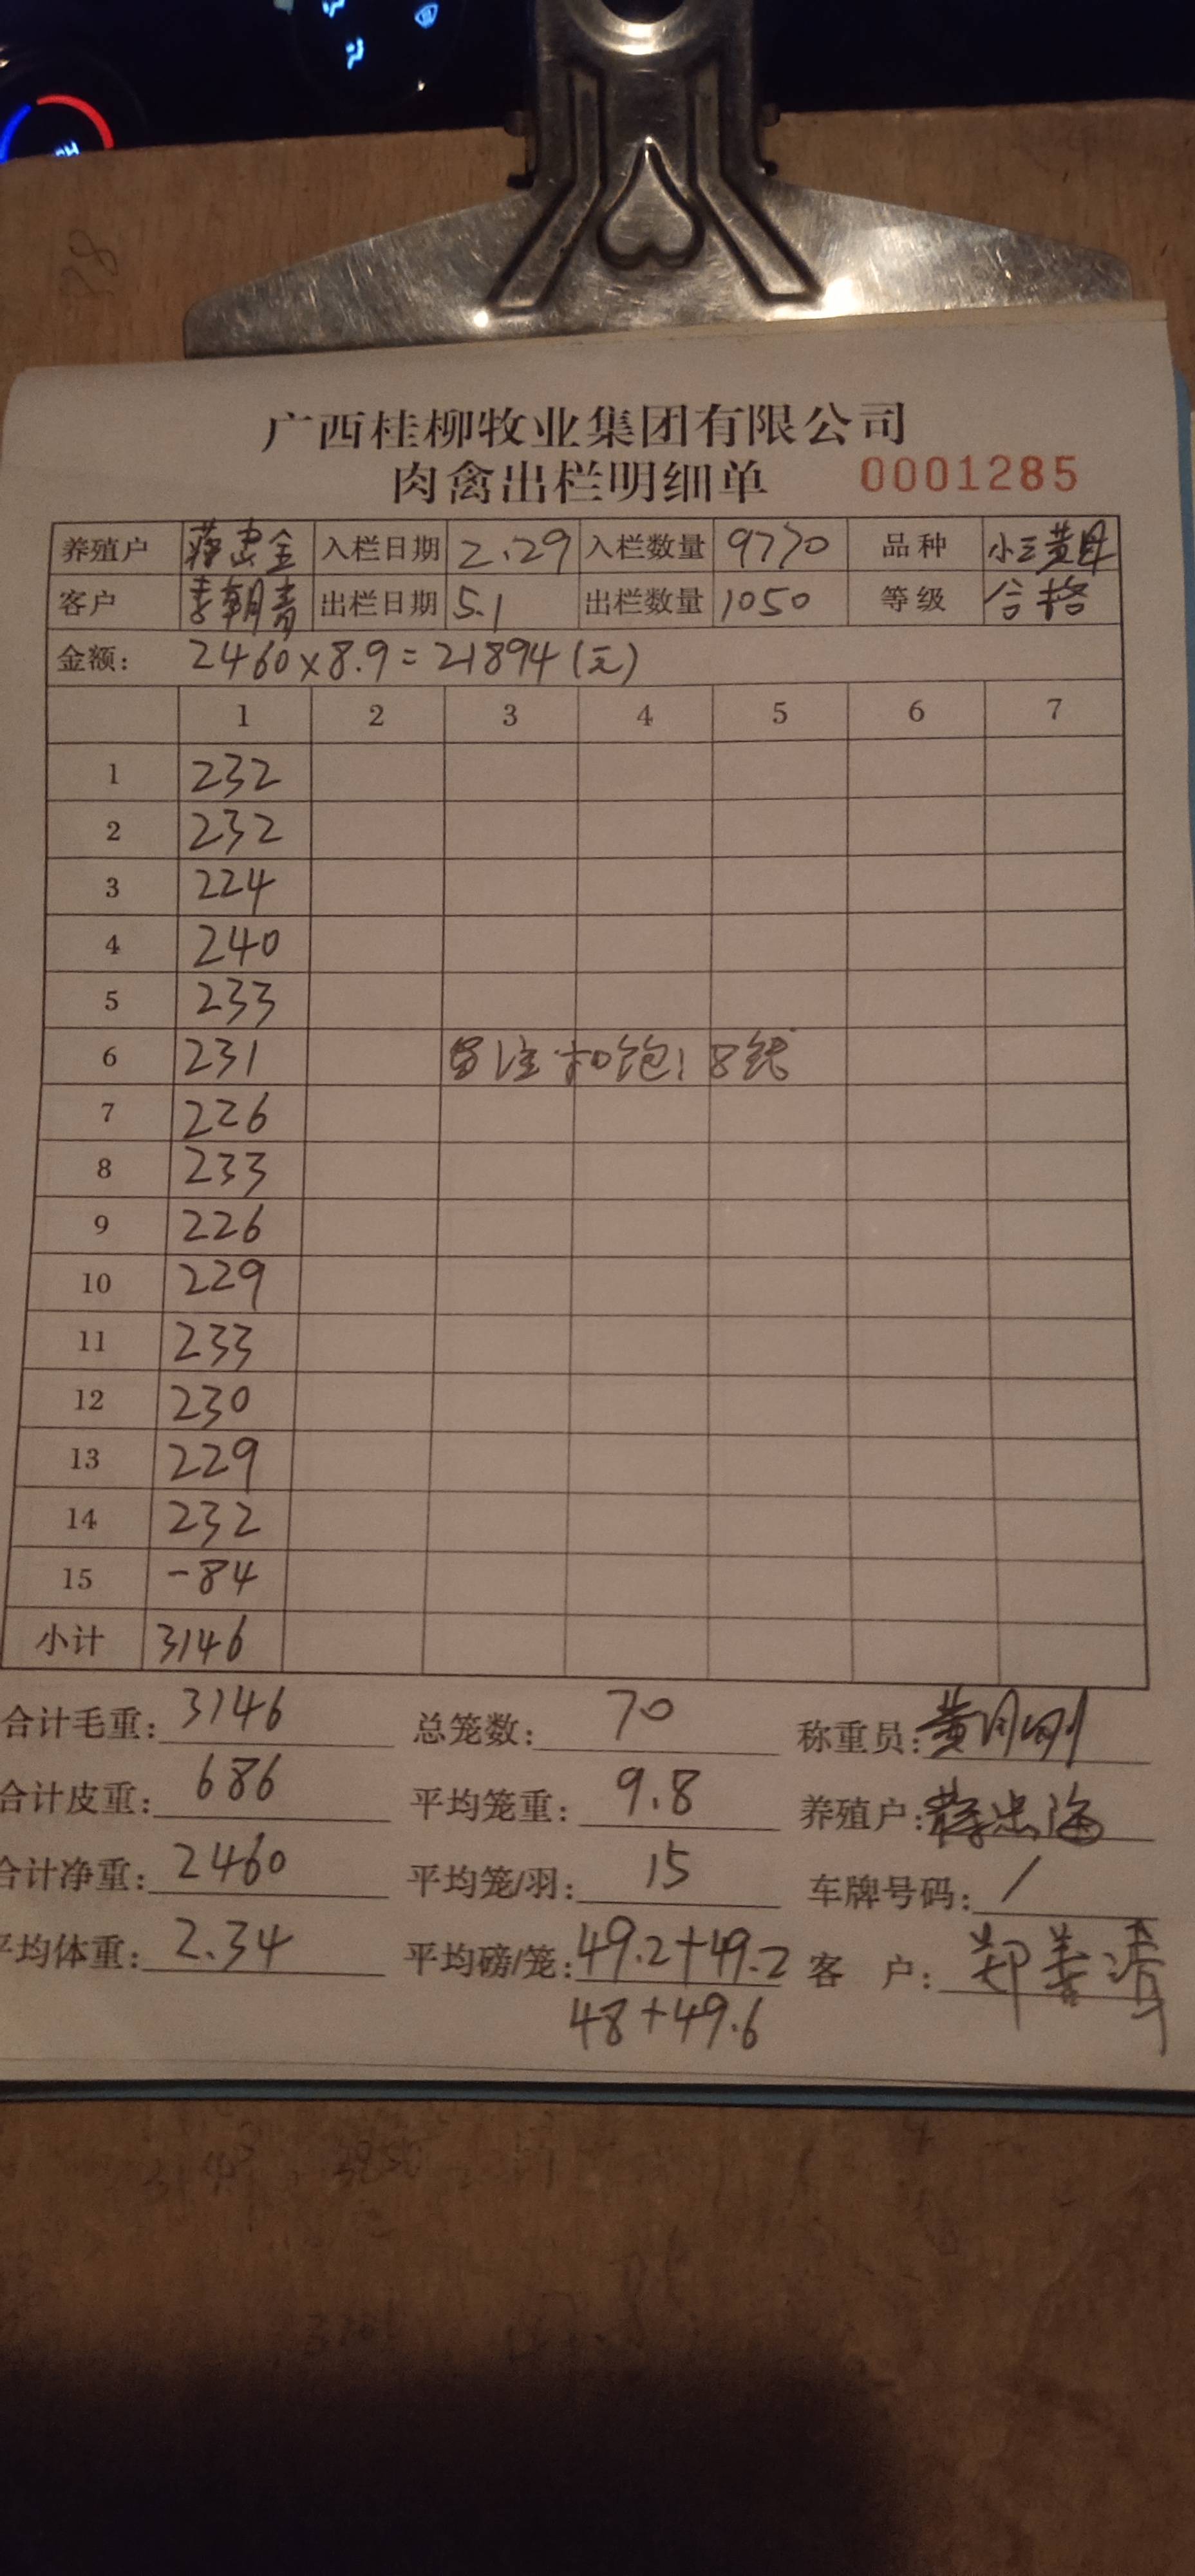 广西桂柳牧业集团有限公司
肉禽出栏明细单 0001285
养殖户 蒋忠全 入栏日期 2.29 入栏数量 9770 品种 小三黄母
客户 李朝青 出栏日期 5.1 出栏数量 1050 等级 合格
金额: 2460×8.9=21894(元)
1 2 3 4 5 6 7
1 232
2 232
3 224
4 240
5 233
6 231 注 扣饱1.8钱
7 226
8 233
9 226
10 229
11 233
12 230
13 229
14 232
15 -84
小计 3146
合计毛重: 3146 总笼数: 70 称重员: 黄月刚
合计皮重: 686 平均笼重: 9.8 养殖户: 蒋忠海
合计净重: 2460 平均笼/羽: 15 车牌号码: /
平均体重: 2.34 平均磅/笼: 49.2+49.2 客 户: 郑善清
48+49.6